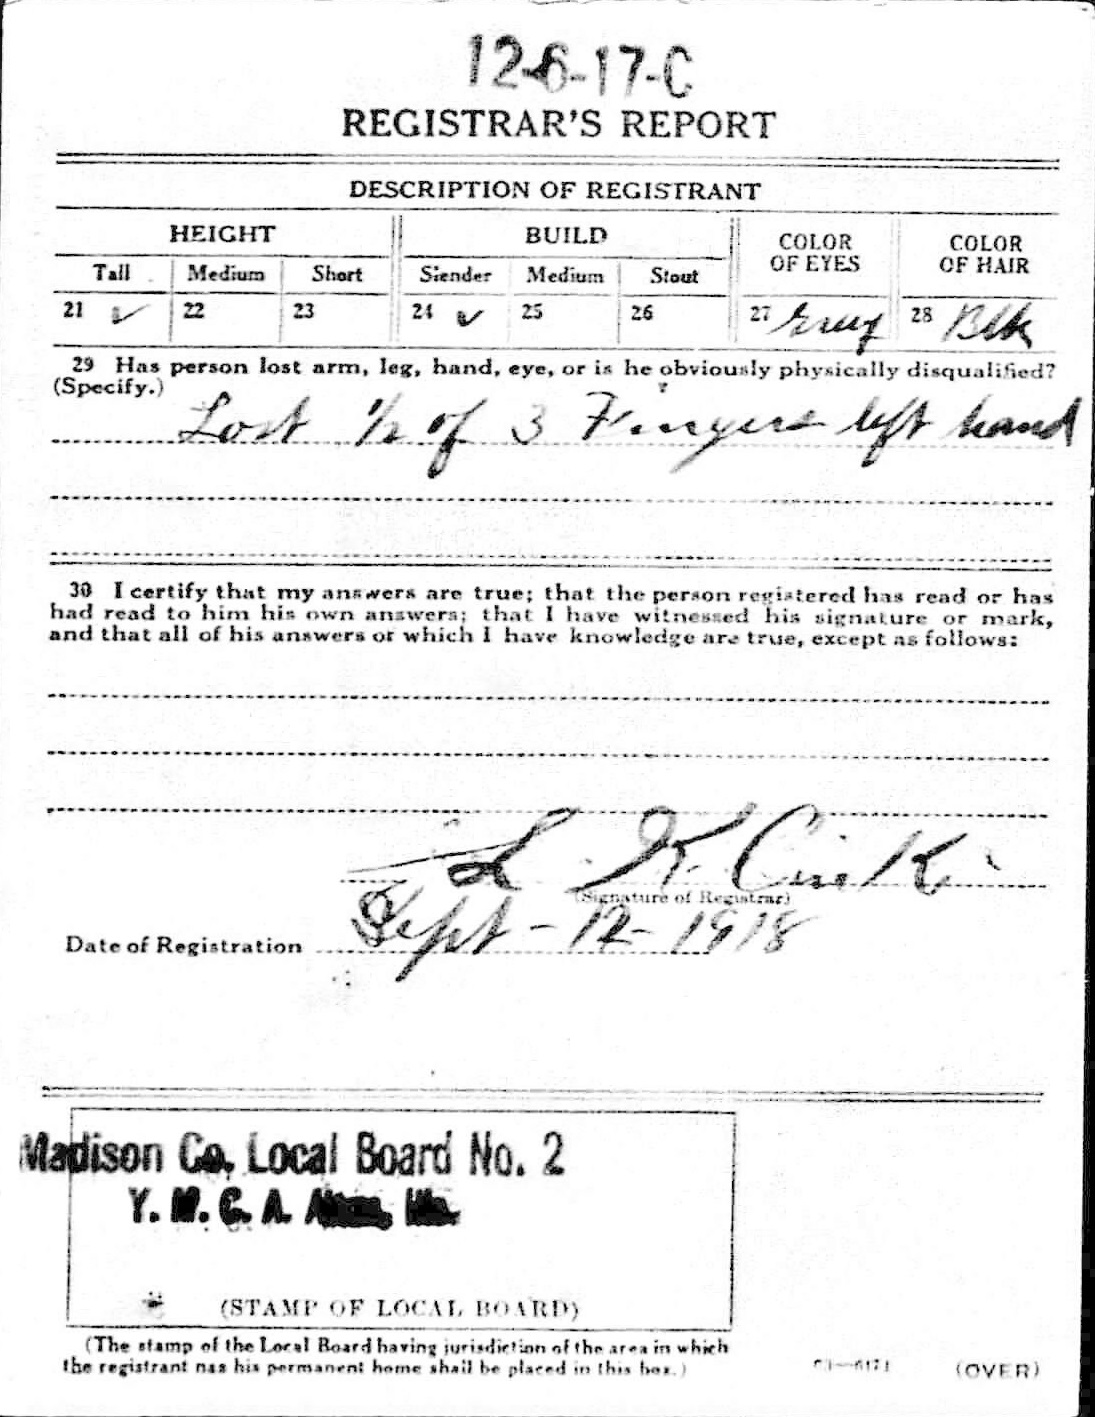 12-6-17-C
REGISTRAR'S REPORT
DESCRIPTION OF REGISTRANT
HEIGHT BUILD COLOR OF EYES COLOR OF HAIR
Tall Medium Short Slender Medium Stout
21 ✓ 22 23 24 ✓ 25 26 27 Grey 28 Blk
29 Has person lost arm, leg, hand, eye, or is he obviously physically disqualified?
(Specify.)
Lost 1/2 of 3 Fingers left hand
30 I certify that my answers are true; that the person registered has read or has
had read to him his own answers; that I have witnessed his signature or mark,
and that all of his answers of which I have knowledge are true, except as follows:
(Signature of Registrar)
Date of Registration Sept-12-1918
Madison Co. Local Board No. 2
Y. M. C. A.
(STAMP OF LOCAL BOARD)
(The stamp of the Local Board having jurisdiction of the area in which
the registrant has his permanent home shall be placed in this box.)
(OVER)